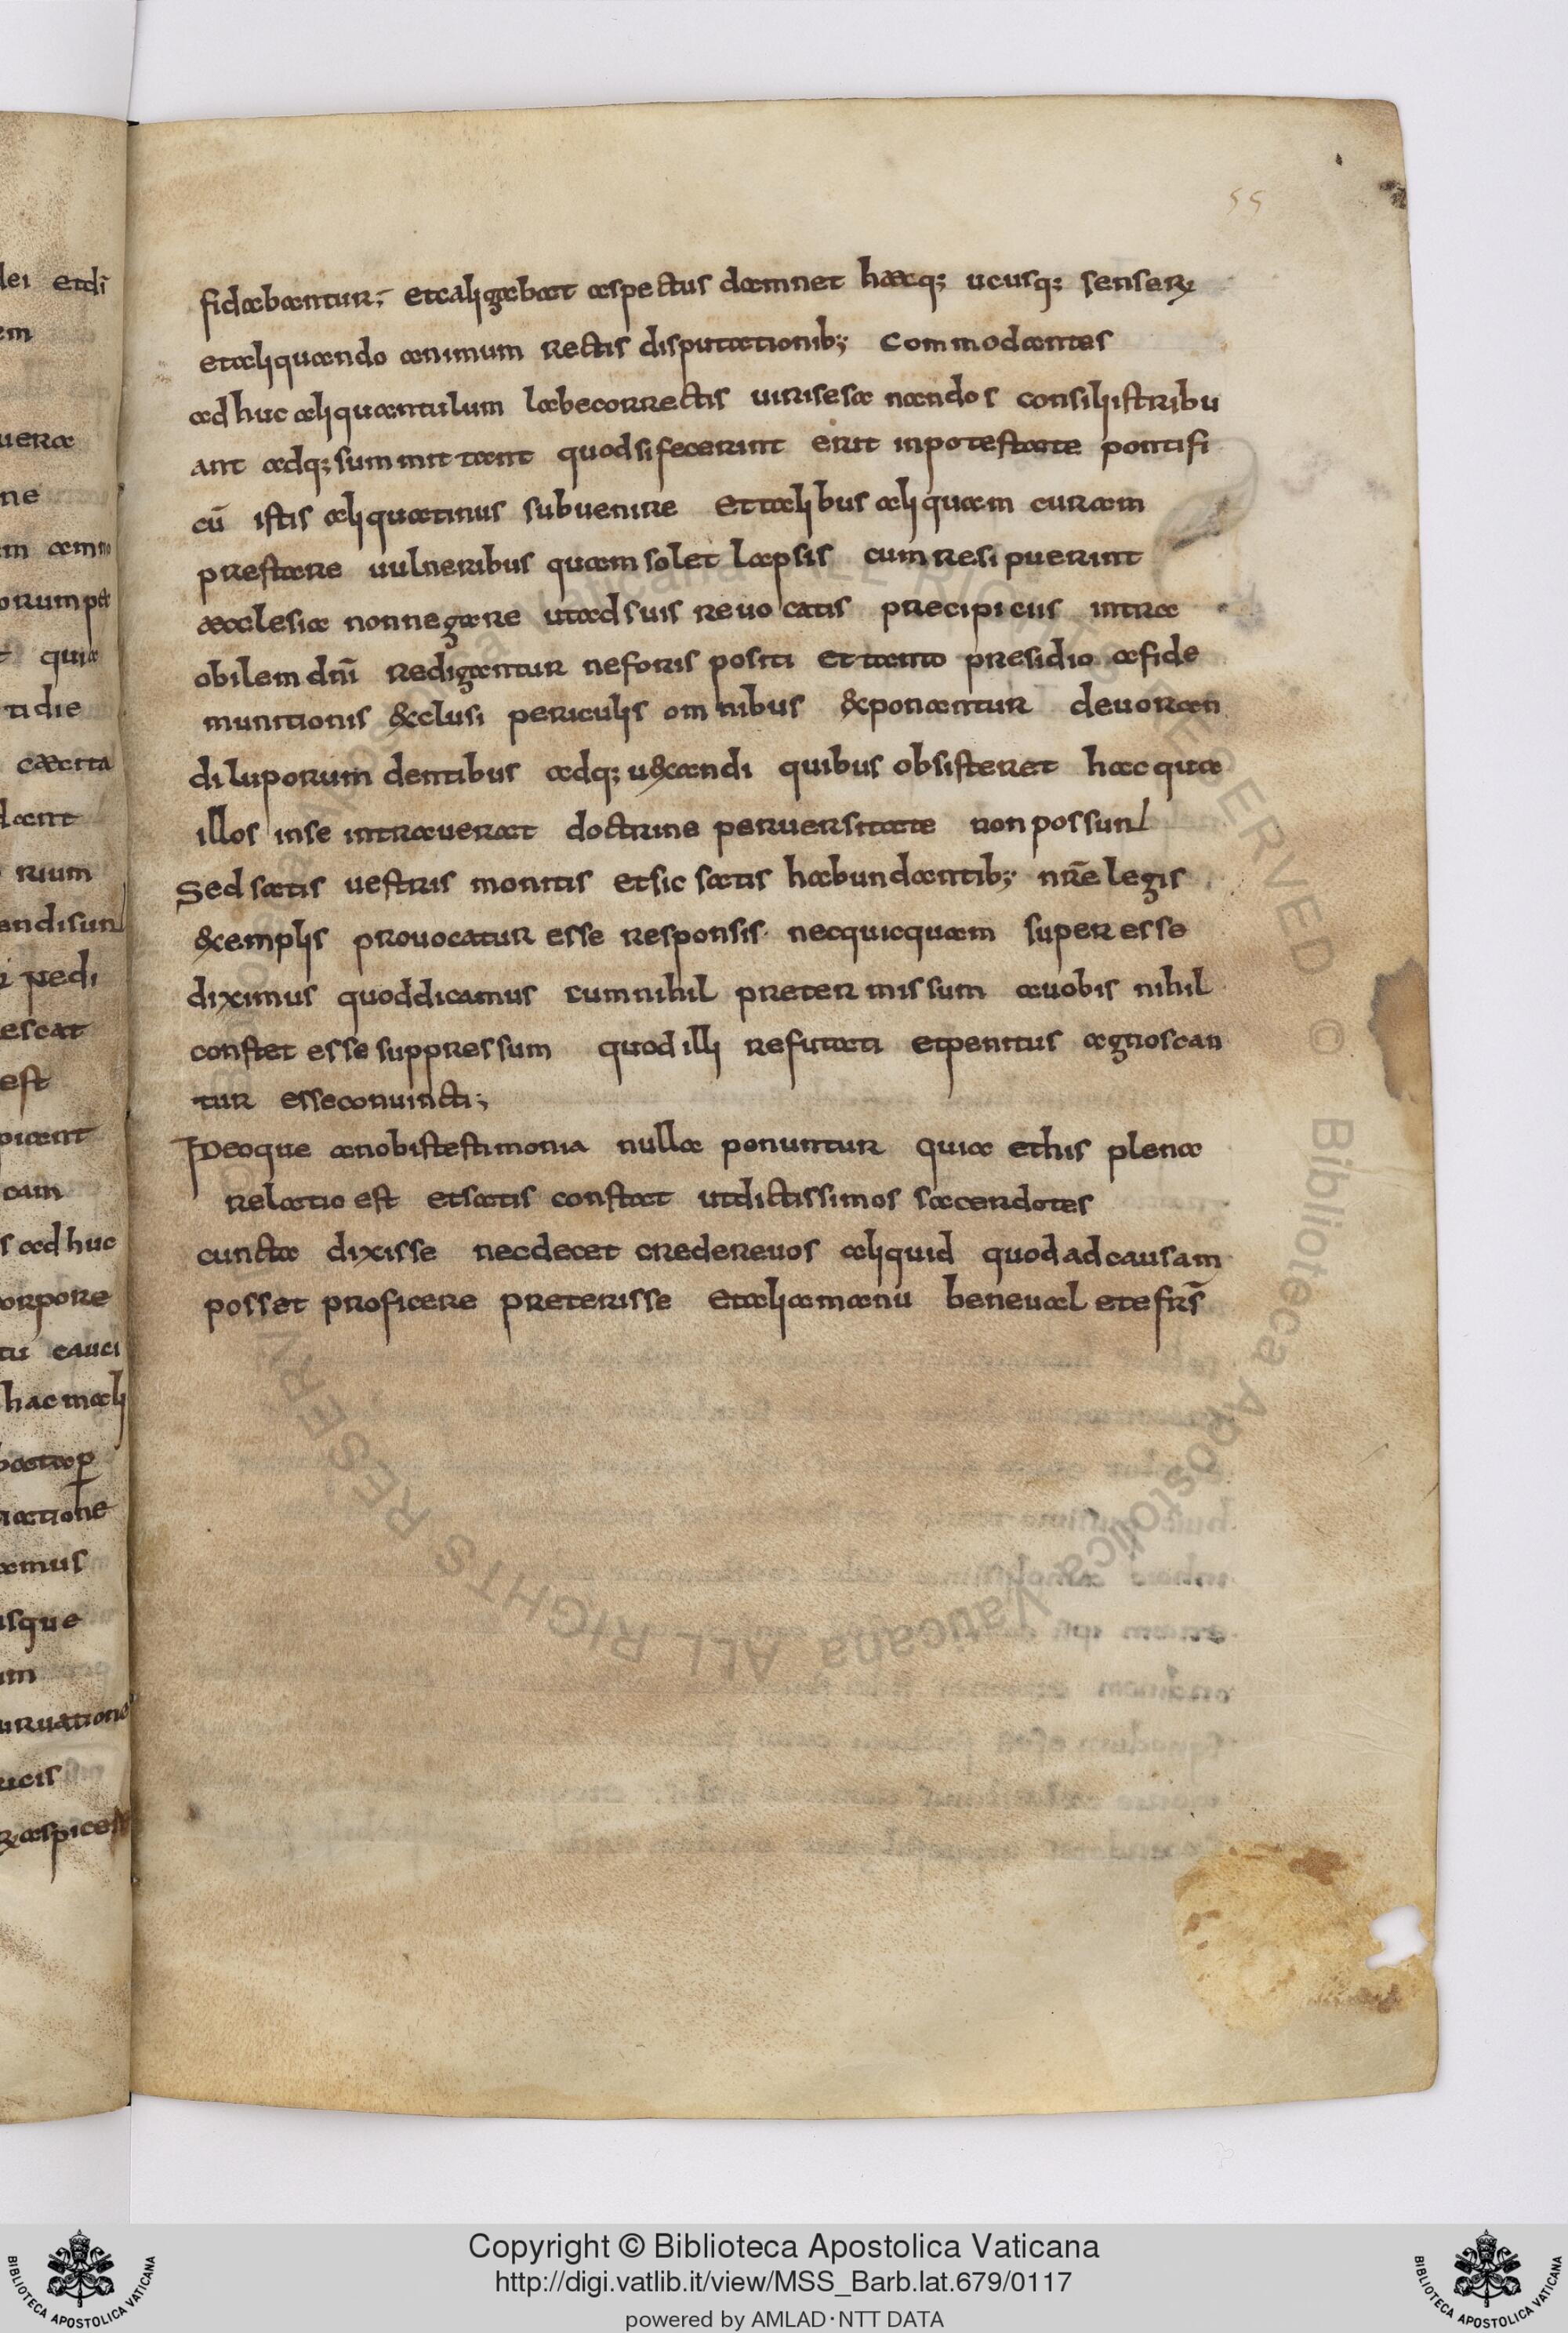 55
fidabantur; et caligabat aspectus damnet hæcq; ucusq; senserꝝ
et aliquando animum rectis disputationib; Commodantes
ad huc aliquantulum labe correctis uiris e sa nandos consiliis tribu
ant adq; summittant quod si fecerint erit in potestate pontifi
cū istis aliquatinus subuenire et talibus aliquam curam
prestare uulneribus quam solet lapsis cum resipuerint
æcclesia non negare ut ad suis reuocatis precipicus intra
obilem dn̄i redigantur ne foris positi et tanto presidio a fide
munitionis &clusi periculis omnibus &ponantur deuoran
di luporum dentibus adq; u&andi quibus obsisteret hac qua
illos in se intrauerat doctrine peruersitate non possunt
Sed satis uestris monitis et sic satis habundantib; nr̄e legis
&emplis prouocatur esse responsis necquicquam superesse
diximus quod dicamus cum nihil pretermissum a uobis nihil
constet esse suppressum quod illi refutati et penitus agnoscan
tur esse conuincti;
Ideoque a nobis testimonia nulla ponuntur quia et his plena
relatio est et satis constat ut dictissimos sacerdotes
cuncta dixisse nec decet credere uos aliquid quod ad causam
posset proficere preterisse et alia manu beneual ete frs̄
lei et di
em
uera
ne
m
orum
quia
tidie
dant
rium
andisunt
pedi
escat
est
cam
s ad huc
orpore
cauci
hac mali
actione
amus
usque
um
uruatione
ucis
aspice
Copyright © Biblioteca Apostolica Vaticana
http://digi.vatlib.it/view/MSS_Barb.lat.679/0117
powered by AMLAD·NTT DATA
BIBLIOTECA APOSTOLICA VATICANA
BIBLIOTECA APOSTOLICA VATICANA
© Biblioteca Apostolica Vaticana ALL RIGHTS RESERVED